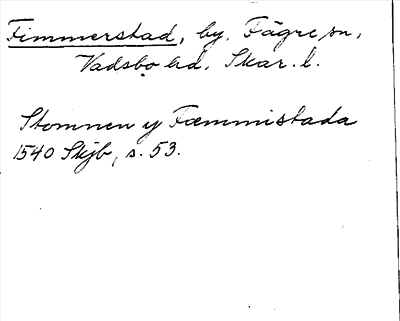 Fimmerstad, by, Fägre sn,
Vadsbo hd. Skar. l.
Stomnen y Fæmmistada
1540 Stjb, s. 53.